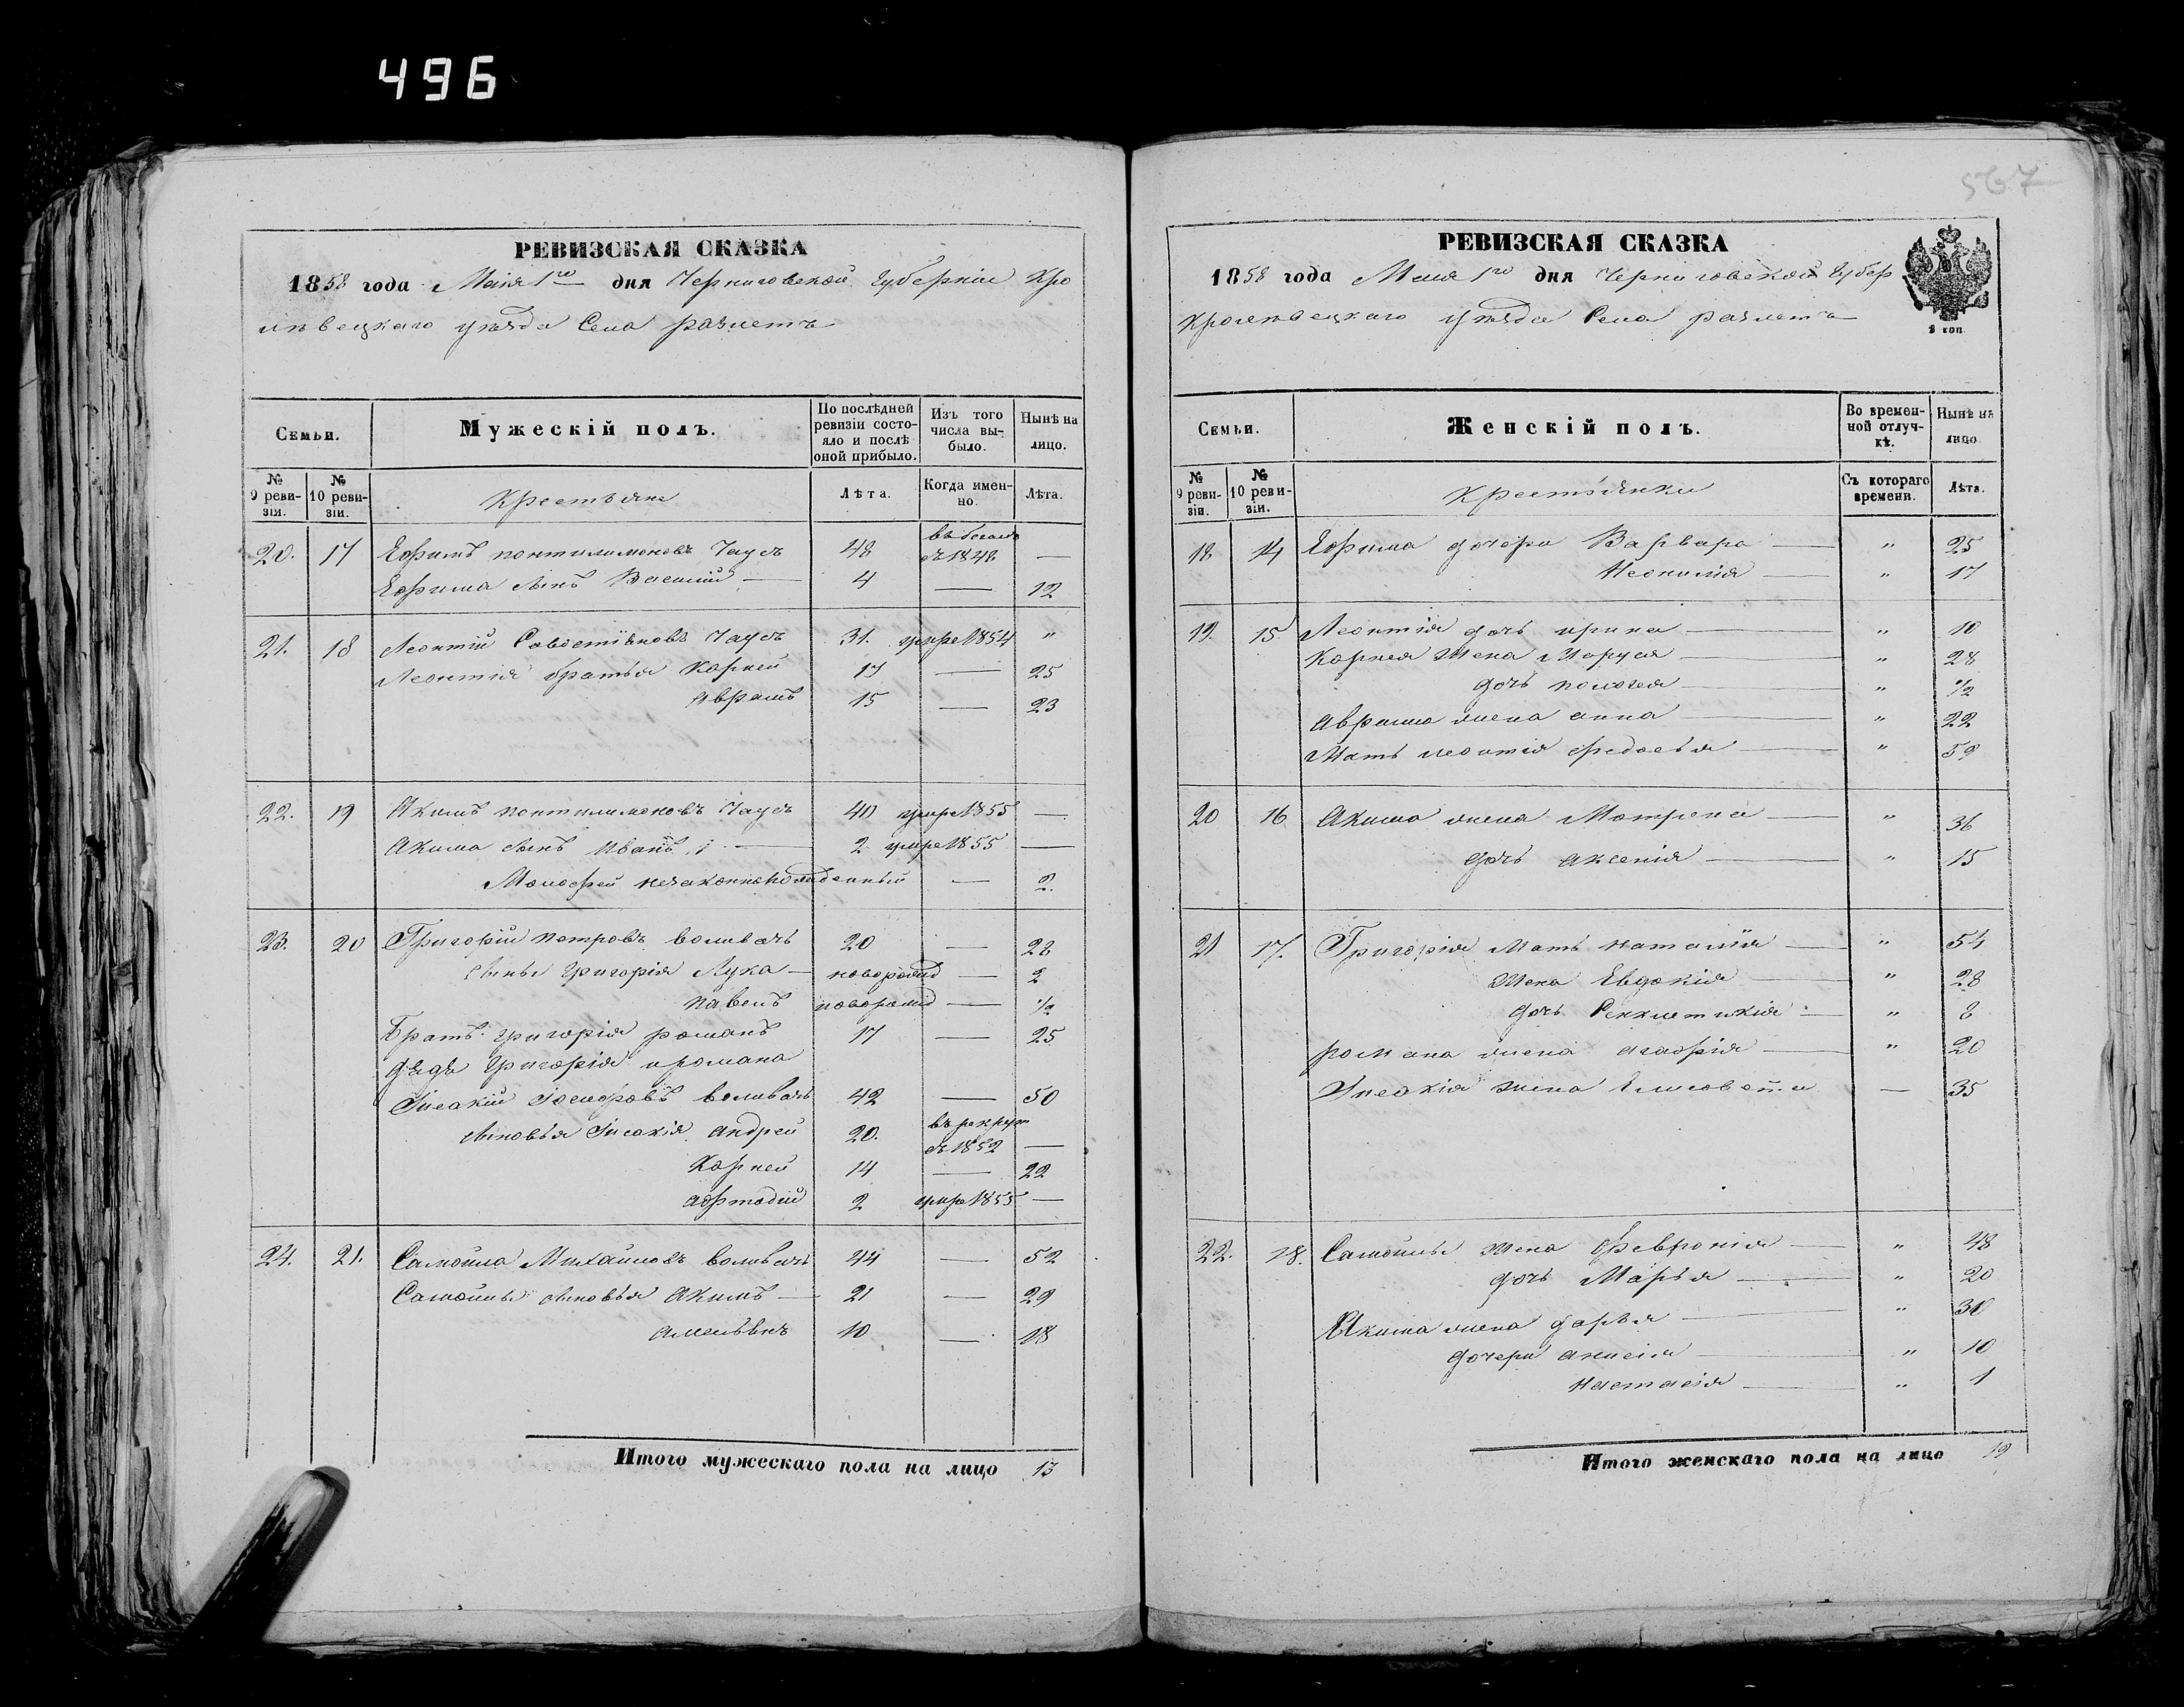 496
567
РЕВИЗСКАЯ СКАЗКА
1858 года Маія 1го дня Черниговской Губерніи Кро
левецкаго уѣзда Села
Семьи. Мужескій полъ. По послѣдней ревизіи состояло и послѣ оной прибыло. Изъ того числа выбыло. Нынѣ на лицо.
№ 9 ревизіи. № 10 ревизіи. Крестьяне Лѣта. Когда именно. Лѣта.
20. 17 Ефимъ Чаусъ 48 въ бегахъ съ 1848 —
Ефима сынъ Василій — 4 — 12
21. 18 Леонтій Савостіановъ Чаусъ 31. умре 1854 "
Леонтія братья Корней 17 — 25
Аврамъ 15 — 23
22. 19 Акимъ Чаусъ 40 умре 1855 —
Акима сынъ Иванъ — 2 умре 1855 —
незаконнорожденный — 2.
23. 20 Григорій Петровъ 20 — 28
сыны Григорія Лука — новорожд — 2
Павелъ новорожд — 1/2
Братъ Григорія романъ 17 — 25
дядя Григорія и романа
42 — 50
сыновья Андрей 20. съ 1852 —
Корней 14 — 22
2 умре 1855 —
24. 21. Самойла Михайловъ 44 — 52
Самойлы сыновья Акимъ — 21 — 29
10 — 18
Итого мужескаго пола на лицо 13
РЕВИЗСКАЯ СКАЗКА
1858 года Маия 1го дня Черниговской Губер
Кролевецкаго уѣзда Села
2 коп
Семьи. Женскій полъ. Во временной отлучкѣ. Нынѣ на лицо
№ 9 ревизіи. № 10 ревизіи. Крестьянки Съ котораго времени. Лѣта.
18 14 Ефима дочери Варвара — " 25
— " 17
19. 15. Леонтія дочь ирина — " 10
Корнея жена Маруся — " 28
дочь — " 1/2
Аврама жена анна — " 22
Мать леонтія федосья — " 59
20 16 Акима жена Матрена — " 36
дочь аксенія — " 15
21 17. Григорія Мать наталія — " 54
жена Евдокія — " 28
дочь — " 8
романа жена агафія — " 20
жена Елисовета — 35
22. 18. Самойлы жена Февронія — " 48
дочь Марья — " 20
Акима жена дарья — " 30
дочери — " 10
настасія — " 1
Итого женскаго пола на лицо 19